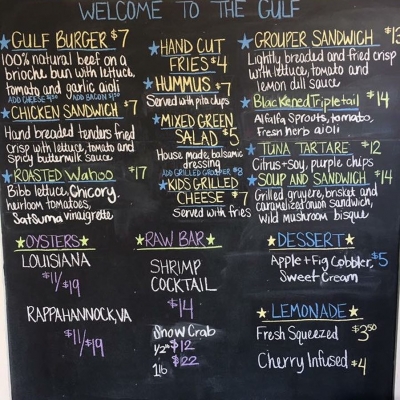 WELCOME TO THE GULF
GULF BURGER $7
100% natural beef on a
brioche bun with lettuce,
tomato and garlic aioli
ADD CHEESE $.50 ADD BACON $1.50
CHICKEN SANDWICH $7
Hand breaded tenders fried
crisp with lettuce, tomato and
Spicy buttermilk sauce
ROASTED Wahoo $17
Bibb lettuce, Chicory,
heirloom tomatoes,
Satsuma vinaigrette
HAND CUT
FRIES $4
HUMMUS $7
Served with pita chips
MIXED GREEN
SALAD $5
House made balsamic
dressing
ADD GRILLED GROUPER $8
KIDS GRILLED
CHEESE $7
Served with fries
GROUPER SANDWICH $13
Lightly breaded and fried crisp
with lettuce, tomato and
lemon dill sauce
Blackened Tripletail $14
Alfalfa Sprouts, tomato,
Fresh herb aioli
TUNA TARTARE $12
Citrus + Soy, purple chips
SOUP AND SANDWICH $14
Grilled gruyere, brisket and
caramelized onion sandwich,
wild mushroom bisque
OYSTERS
LOUISIANA
$11/$19
RAPPAHANNOCK, VA
$11/$19
RAW BAR
SHRIMP
COCKTAIL
$14
Snow Crab
1/2 lb $12
1lb $22
DESSERT
Apple + Fig Cobbler, $5
Sweet Cream
LEMONADE
Fresh Squeezed $3.50
Cherry Infused $4